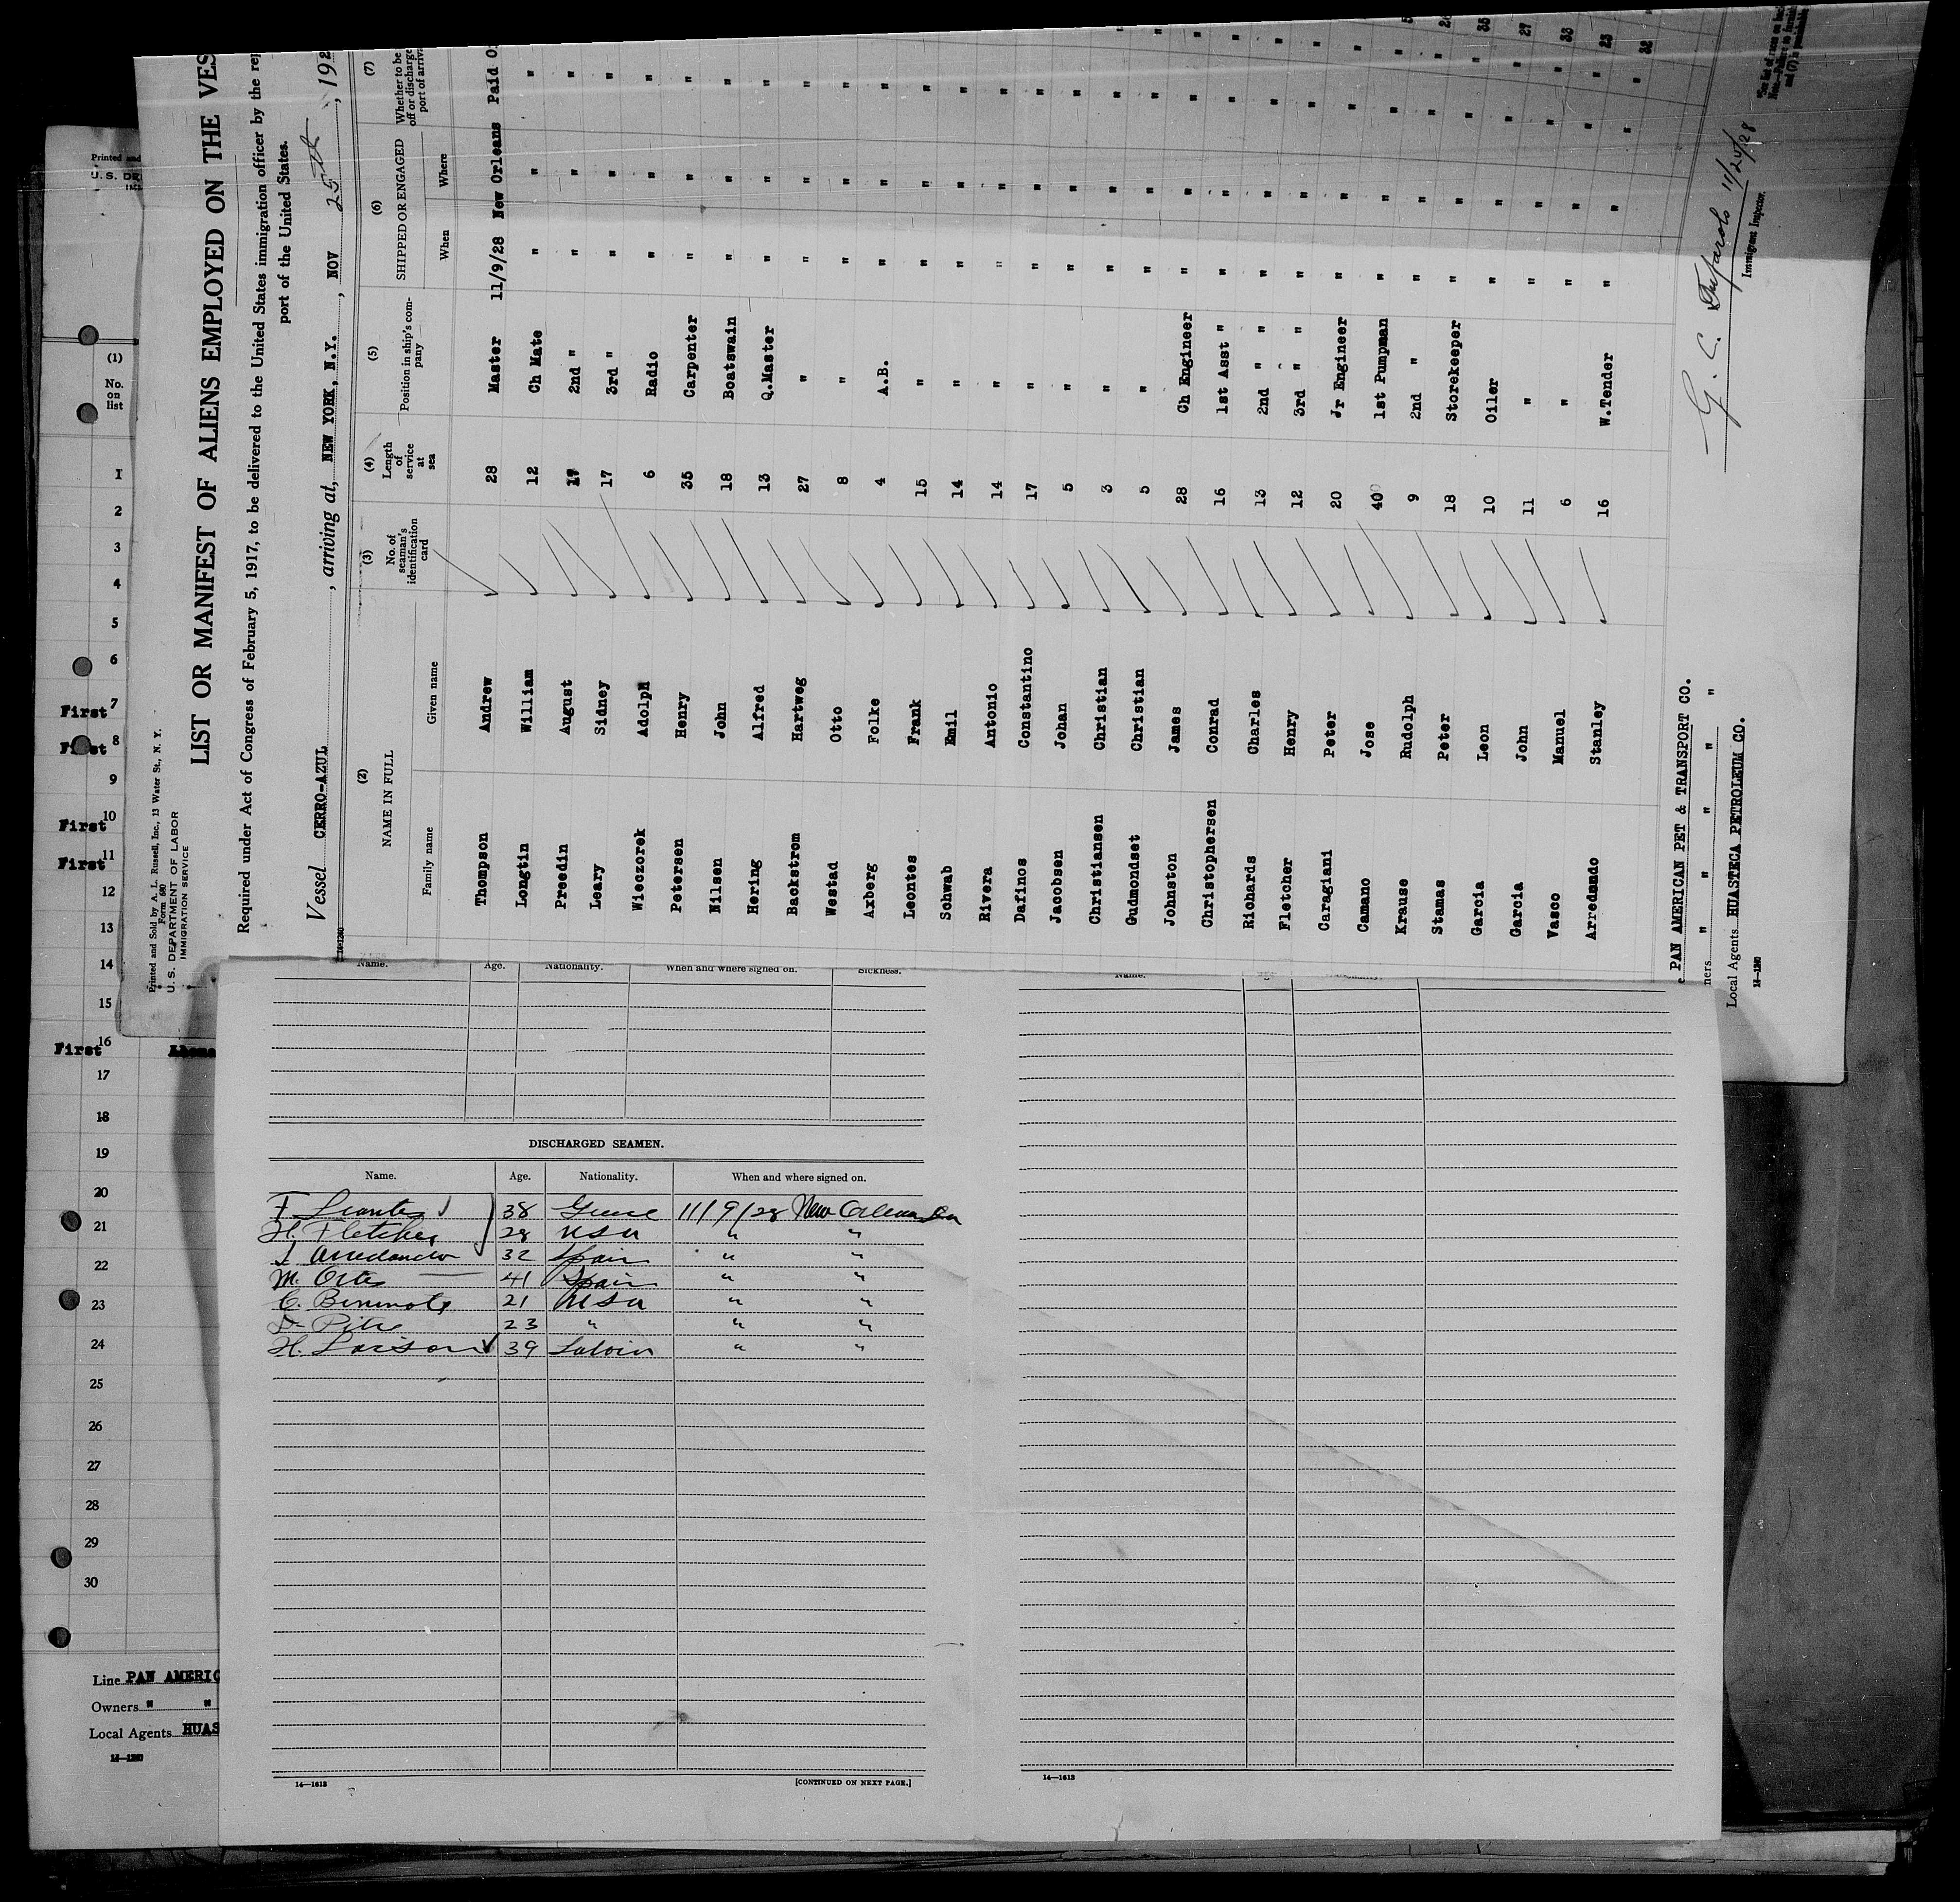 Printed and Sold by A. L. Russell, Inc., 13 Water St., N. Y.
Form 680
U. S. DEPARTMENT OF LABOR
IMMIGRATION SERVICE
LIST OR MANIFEST OF ALIENS EMPLOYED ON THE VES
Required under Act of Congress of February 5, 1917, to be delivered to the United States immigration officer by the rep
port of the United States.
Vessel CERRO-AZUL, arriving at, NEW YORK, N.Y., NOV 25th, 192
(2) (3) (4) (5) (6) (7)
NAME IN FULL No. of seaman's identification card Length of service at sea Position in ship's company SHIPPED OR ENGAGED Whether to be off or discharge port of arriva
Family name Given name When Where
Thompson Andrew 28 Master 11/9/28 New Orleans Paid O
Longtin William 12 Ch Mate " " "
Preedin August 17 2nd " " " "
Leary Sidney 17 3rd " " " "
Wieczorek Adolph 6 Radio " " "
Petersen Henry 35 Carpenter " " "
Nilsen John 18 Boatswain " " "
Hering Alfred 13 Q.Master " " "
Backstrom Hartweg 27 " " " "
Westad Otto 8 " " " "
Axberg Folke 4 A.B. " " "
Leontes Frank 15 " " " "
Schwab Emil 14 " " " "
Rivera Antonio 14 " " " "
Dafinos Constantino 17 " " " "
Jacobsen Johan 5 " " " "
Christiansen Christian 3 " " " "
Gudmondset Christian 5 " " " "
Johnston James 28 Ch Engineer " " "
Christophersen Conrad 16 1st Asst " " " "
Richards Charles 13 2nd " " " " "
Fletcher Henry 12 3rd " " " " "
Caragiani Peter 20 Jr Engineer " " "
Camano Jose 40 1st Pumpman " " "
Krause Rudolph 9 2nd " " " "
Stamas Peter 18 Storekeeper " " "
Garcia Leon 10 Oiler " " "
Garcia John 11 " " " "
Vasco Manuel 6 " " " "
Arredando Stanley 16 W.Tender " " "
26
35
27
33
23
32
e PAN AMERICAN PET & TRANSPORT CO.
ners " " " " "
Local Agents HUASTECA PETROLEUM CO.
14—1240
G. C. 11/26/28
Immigrant Inspector.
Printed and
U. S. DE
(1)
No. on list
1
2
3
4
5
6
First 7
First 8
9
First 10
First 11
12
13
14
15
First 16
17
18
19
20
21
22
23
24
25
26
27
28
29
30
Line PAN AMERIC
Owners " "
Local Agents HUAS
14—1240
Name. Age. Nationality. When and where signed on. Sickness.
DISCHARGED SEAMEN.
Name. Age. Nationality. When and where signed on.
F Leontes 38 Greece 11/9/28 New Orleans La
H. Fletcher 28 USA " "
S Arredando 32 Spain " "
M. Ortes 41 Spain " "
C. 21 USA " "
D. Pitre 23 " " "
H. Larson 39 Latvia " "
14—1613
[CONTINUED ON NEXT PAGE.]
Name.
14—1613